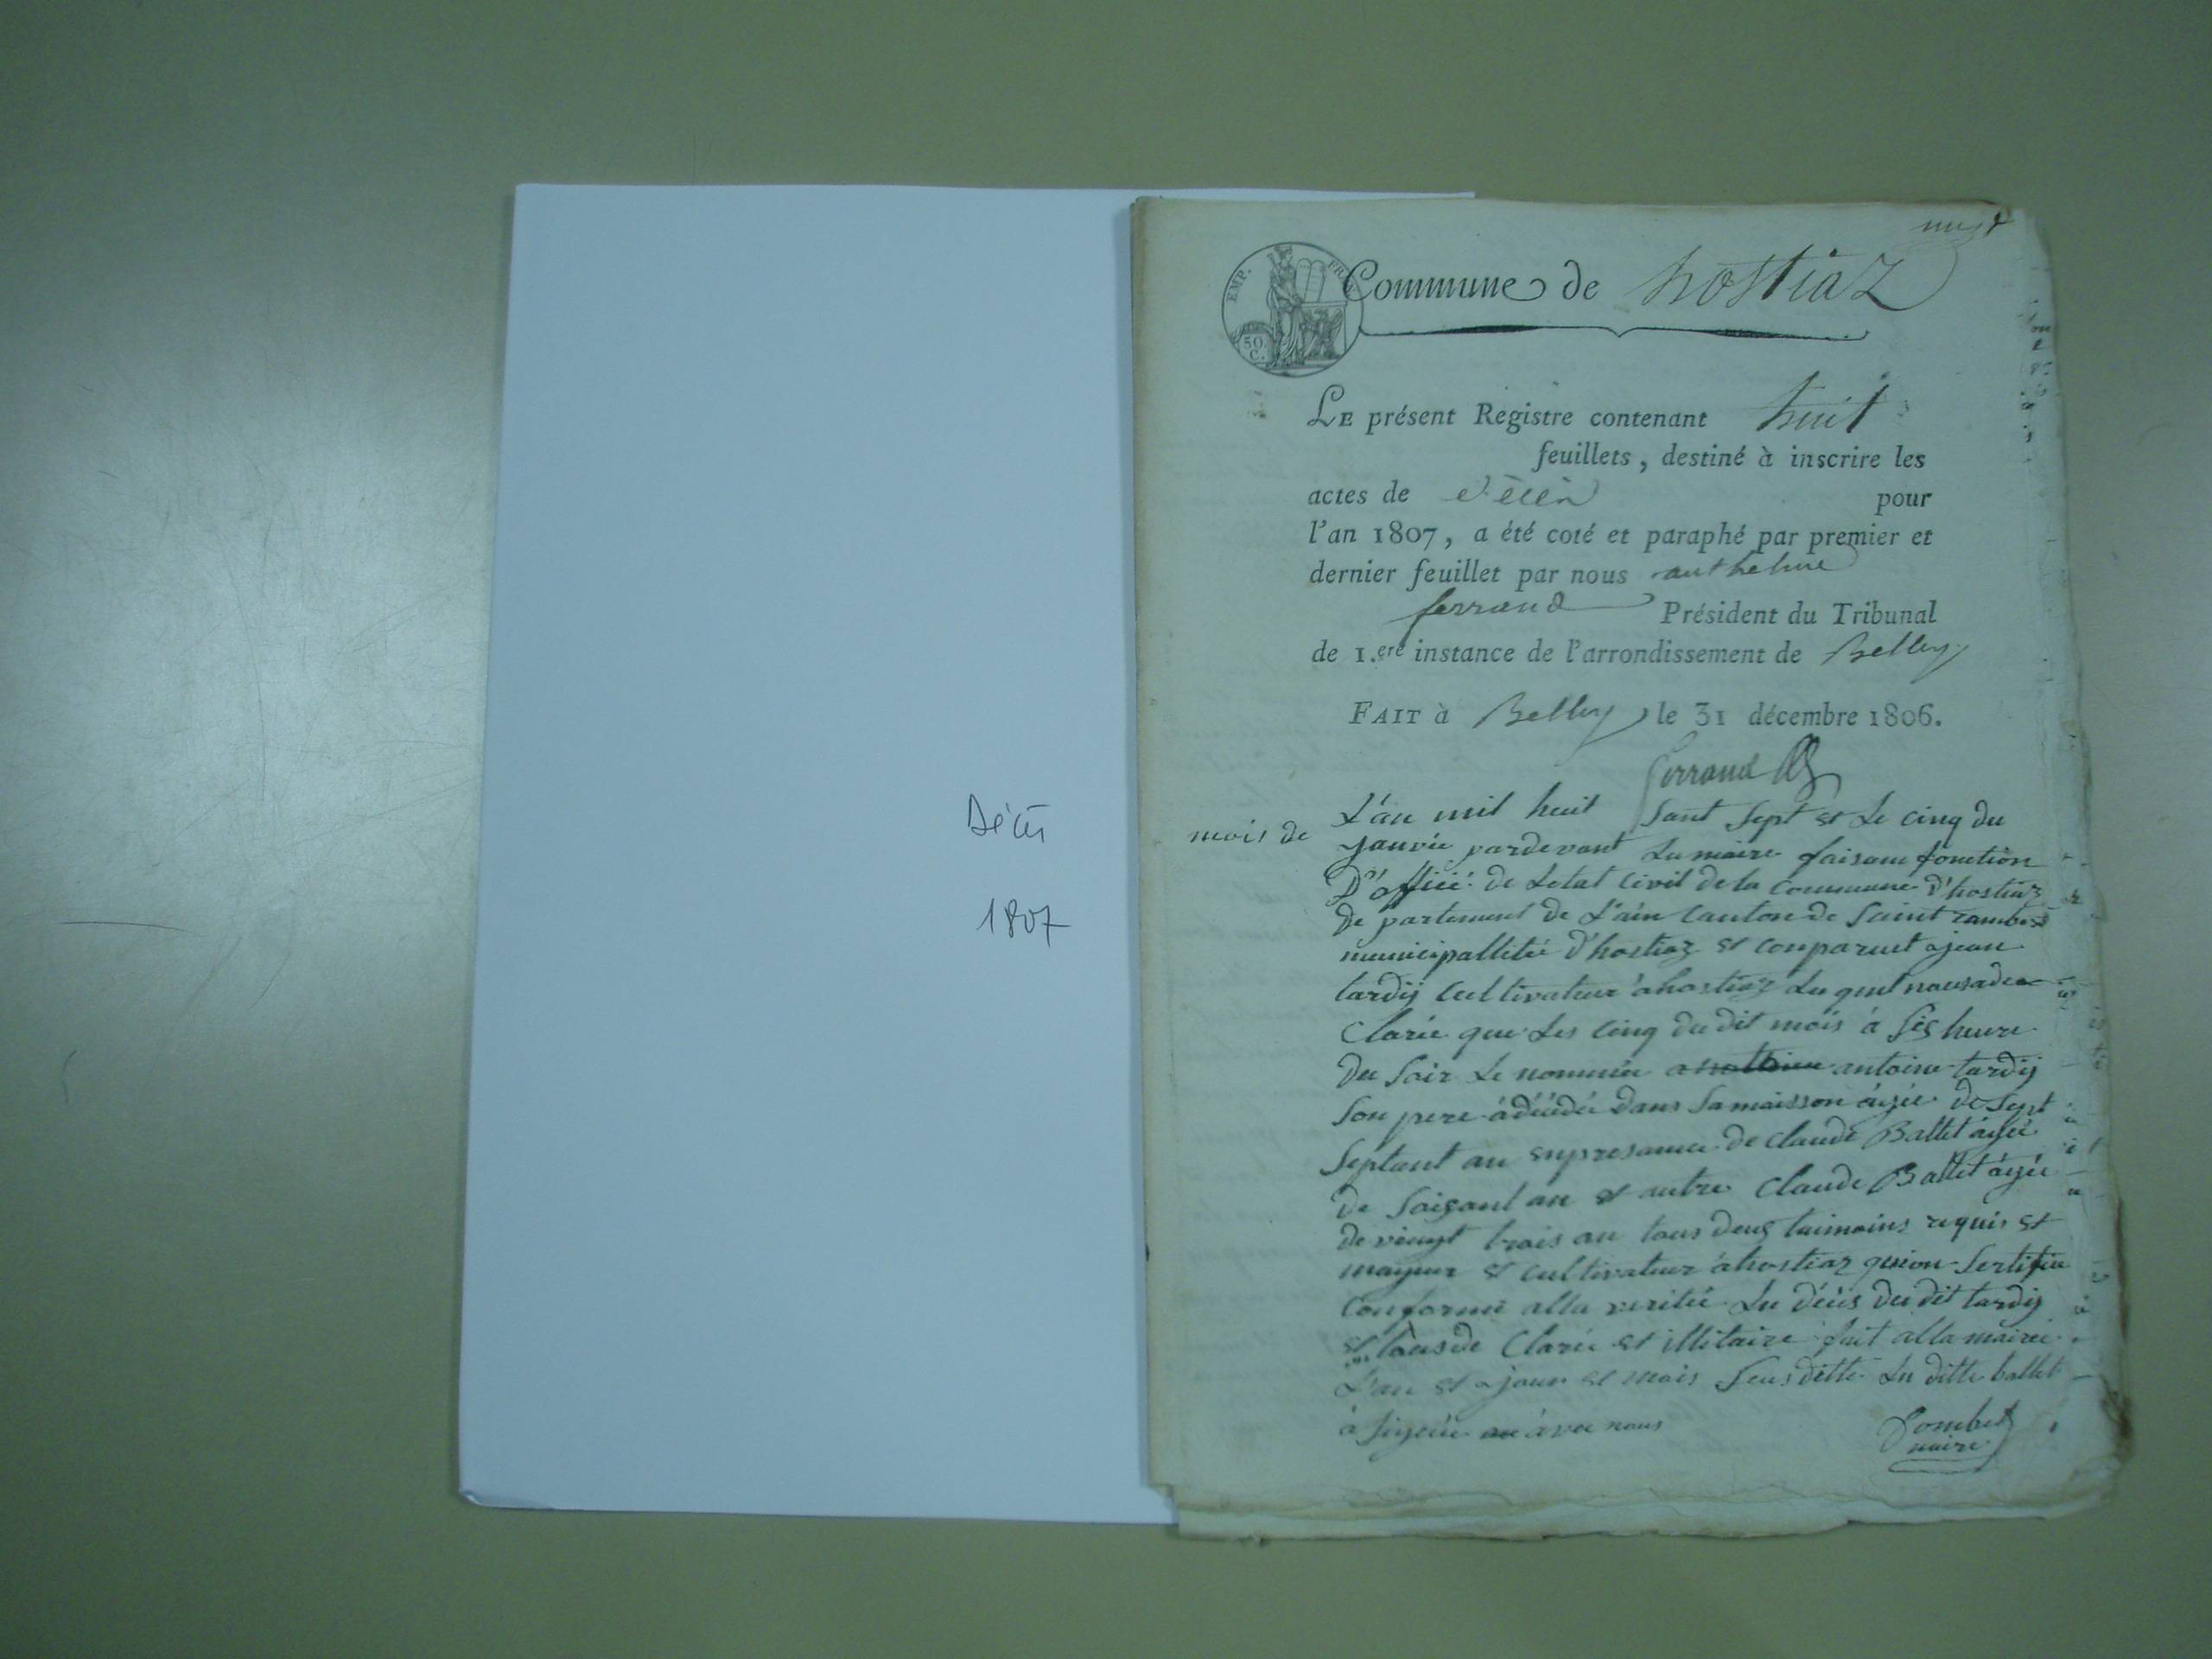 Décès
1807
EMP. FR
50. C.
Commune de hostiaz
LE présent Registre contenant huit
feuillets, destiné à inscrire les
actes de décès pour
l'an 1807, a été coté et paraphé par premier et
dernier feuillet par nous anthelme
ferrand Président du Tribunal
de 1.ere instance de l'arrondissement de Belley
FAIT à Belley le 31 décembre 1806.
ferrand
L'an mil huit sant sept et Le cinq du
mois de janvié pardevant Lu maire faisant fonction
D'officié de Letat civil de la commune d'hostiaz
de partement de L'ain canton de saint rambert
municipallitée d'hostiaz et conparut ajean
tardij cultivateur àhostiaz Lu quel nousade
clarée que Les cinq du dit mois à sis heure
du soir Le nommée antoine tardij
son pere àdécédée dans samaisson âgée de sept
septant an enpresance de claude Ballet âgée
de soisant an et autre claude Ballet âgée
de vingt trois an tous deux taimoins requis et
mayeur et cultivateur àhostiaz quion sertifiée
conforme alla veritée du décès du dit tardij
et tousde clarée et illitaire fait alla mairée
L'an et jour et mois susditte Lu ditte ballet
à signée avec nous
Dombet
maire